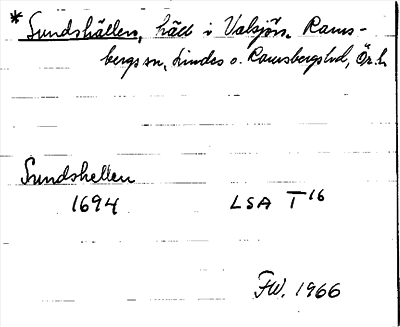 * Sundshällen, häll i Valsjön. Rams-
bergs sn, Lindes o. Ramsbergs hd, Ör. l.
Sundshellen
1694 LSA T16
FW. 1966